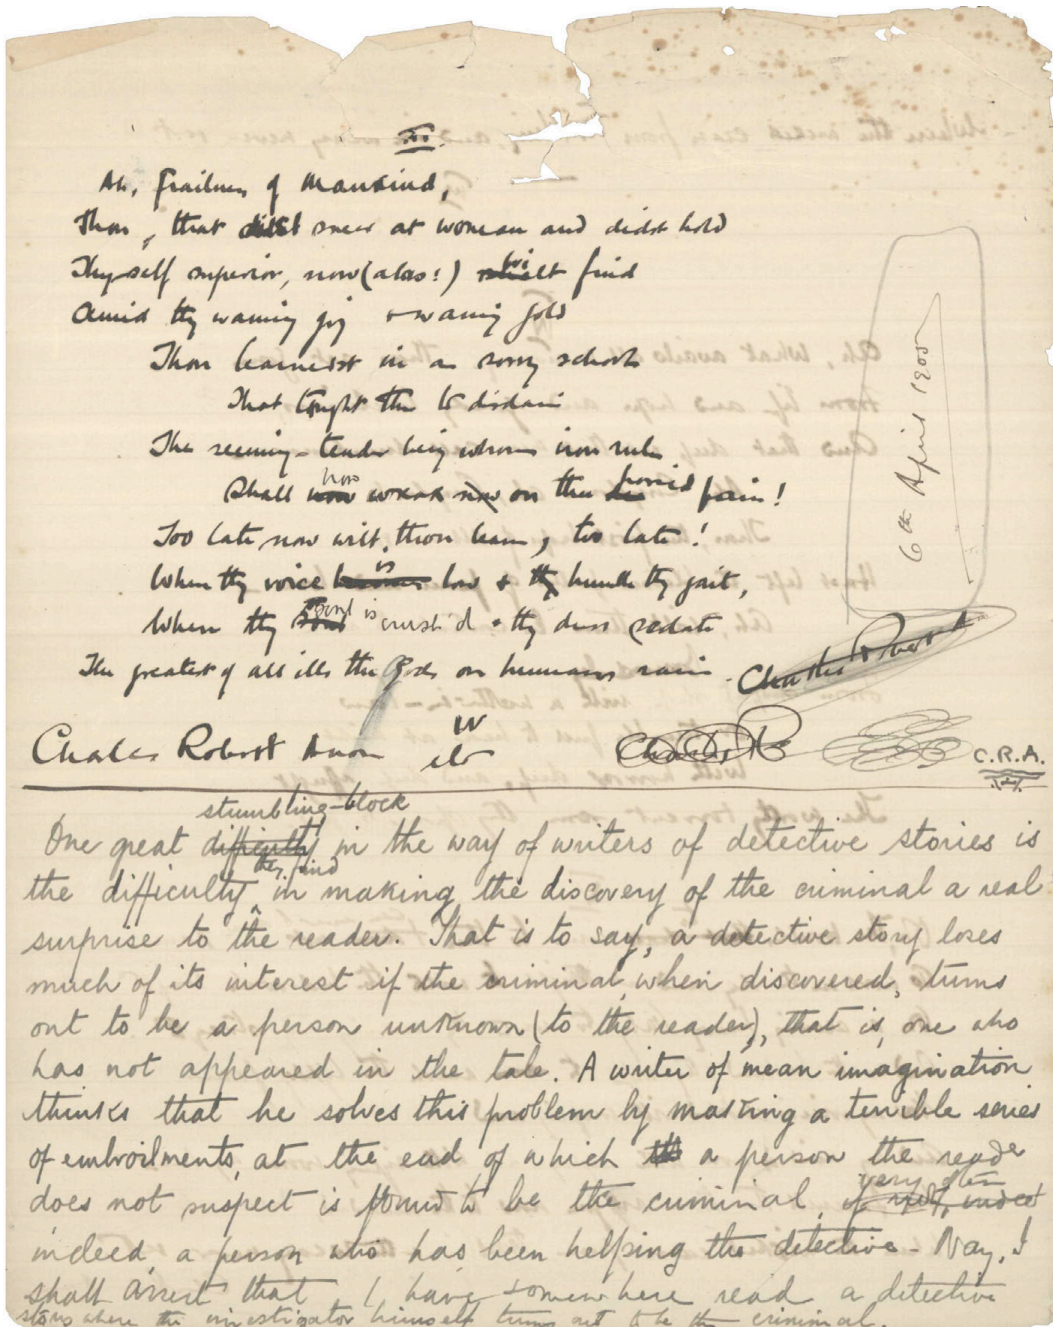 III.
Ah, frailness of Mankind,
Thou, that didst sneer at woman and didst hold
Thyself superior, now (alas!) wilt find
Amid thy waning joy & waning gold
Thou learnest in a sorry school
That taught thee to disdain
The seeming-tender being whose iron rule
Shall now wreak now on thee horrid pain!
Too late now wilt thou learn, too late!
When thy voice is low & thy humble thy gait,
When thy is crush'd & thy dress sedate
The greatest of all ills the Gods on humans rain.
Charles Robert
6th April 1905
Charles Robert Anon
C.R.A.
stumbling-block
One great difficulty in the way of writers of detective stories is
they find
the difficulty in making the discovery of the criminal a real
surprise to the reader. That is to say, a detective story loses
much of its interest if the criminal, when discovered, turns
out to be a person unknown (to the reader), that is, one who
has not appeared in the tale. A writer of mean imagination
thinks that he solves this problem by making a terrible series
of embroilments, at the end of which a person the reader
very often
does not suspect is found to be the criminal, if not, indeed
indeed, a person who has been helping the detective - Nay, I
shall assert that I have somewhere read a detective
story where the investigator himself turns out to be the criminal.